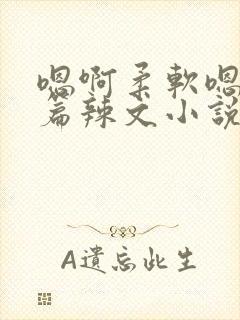 嗯啊柔軟嗯
篇辣文小說
A遺忘此生